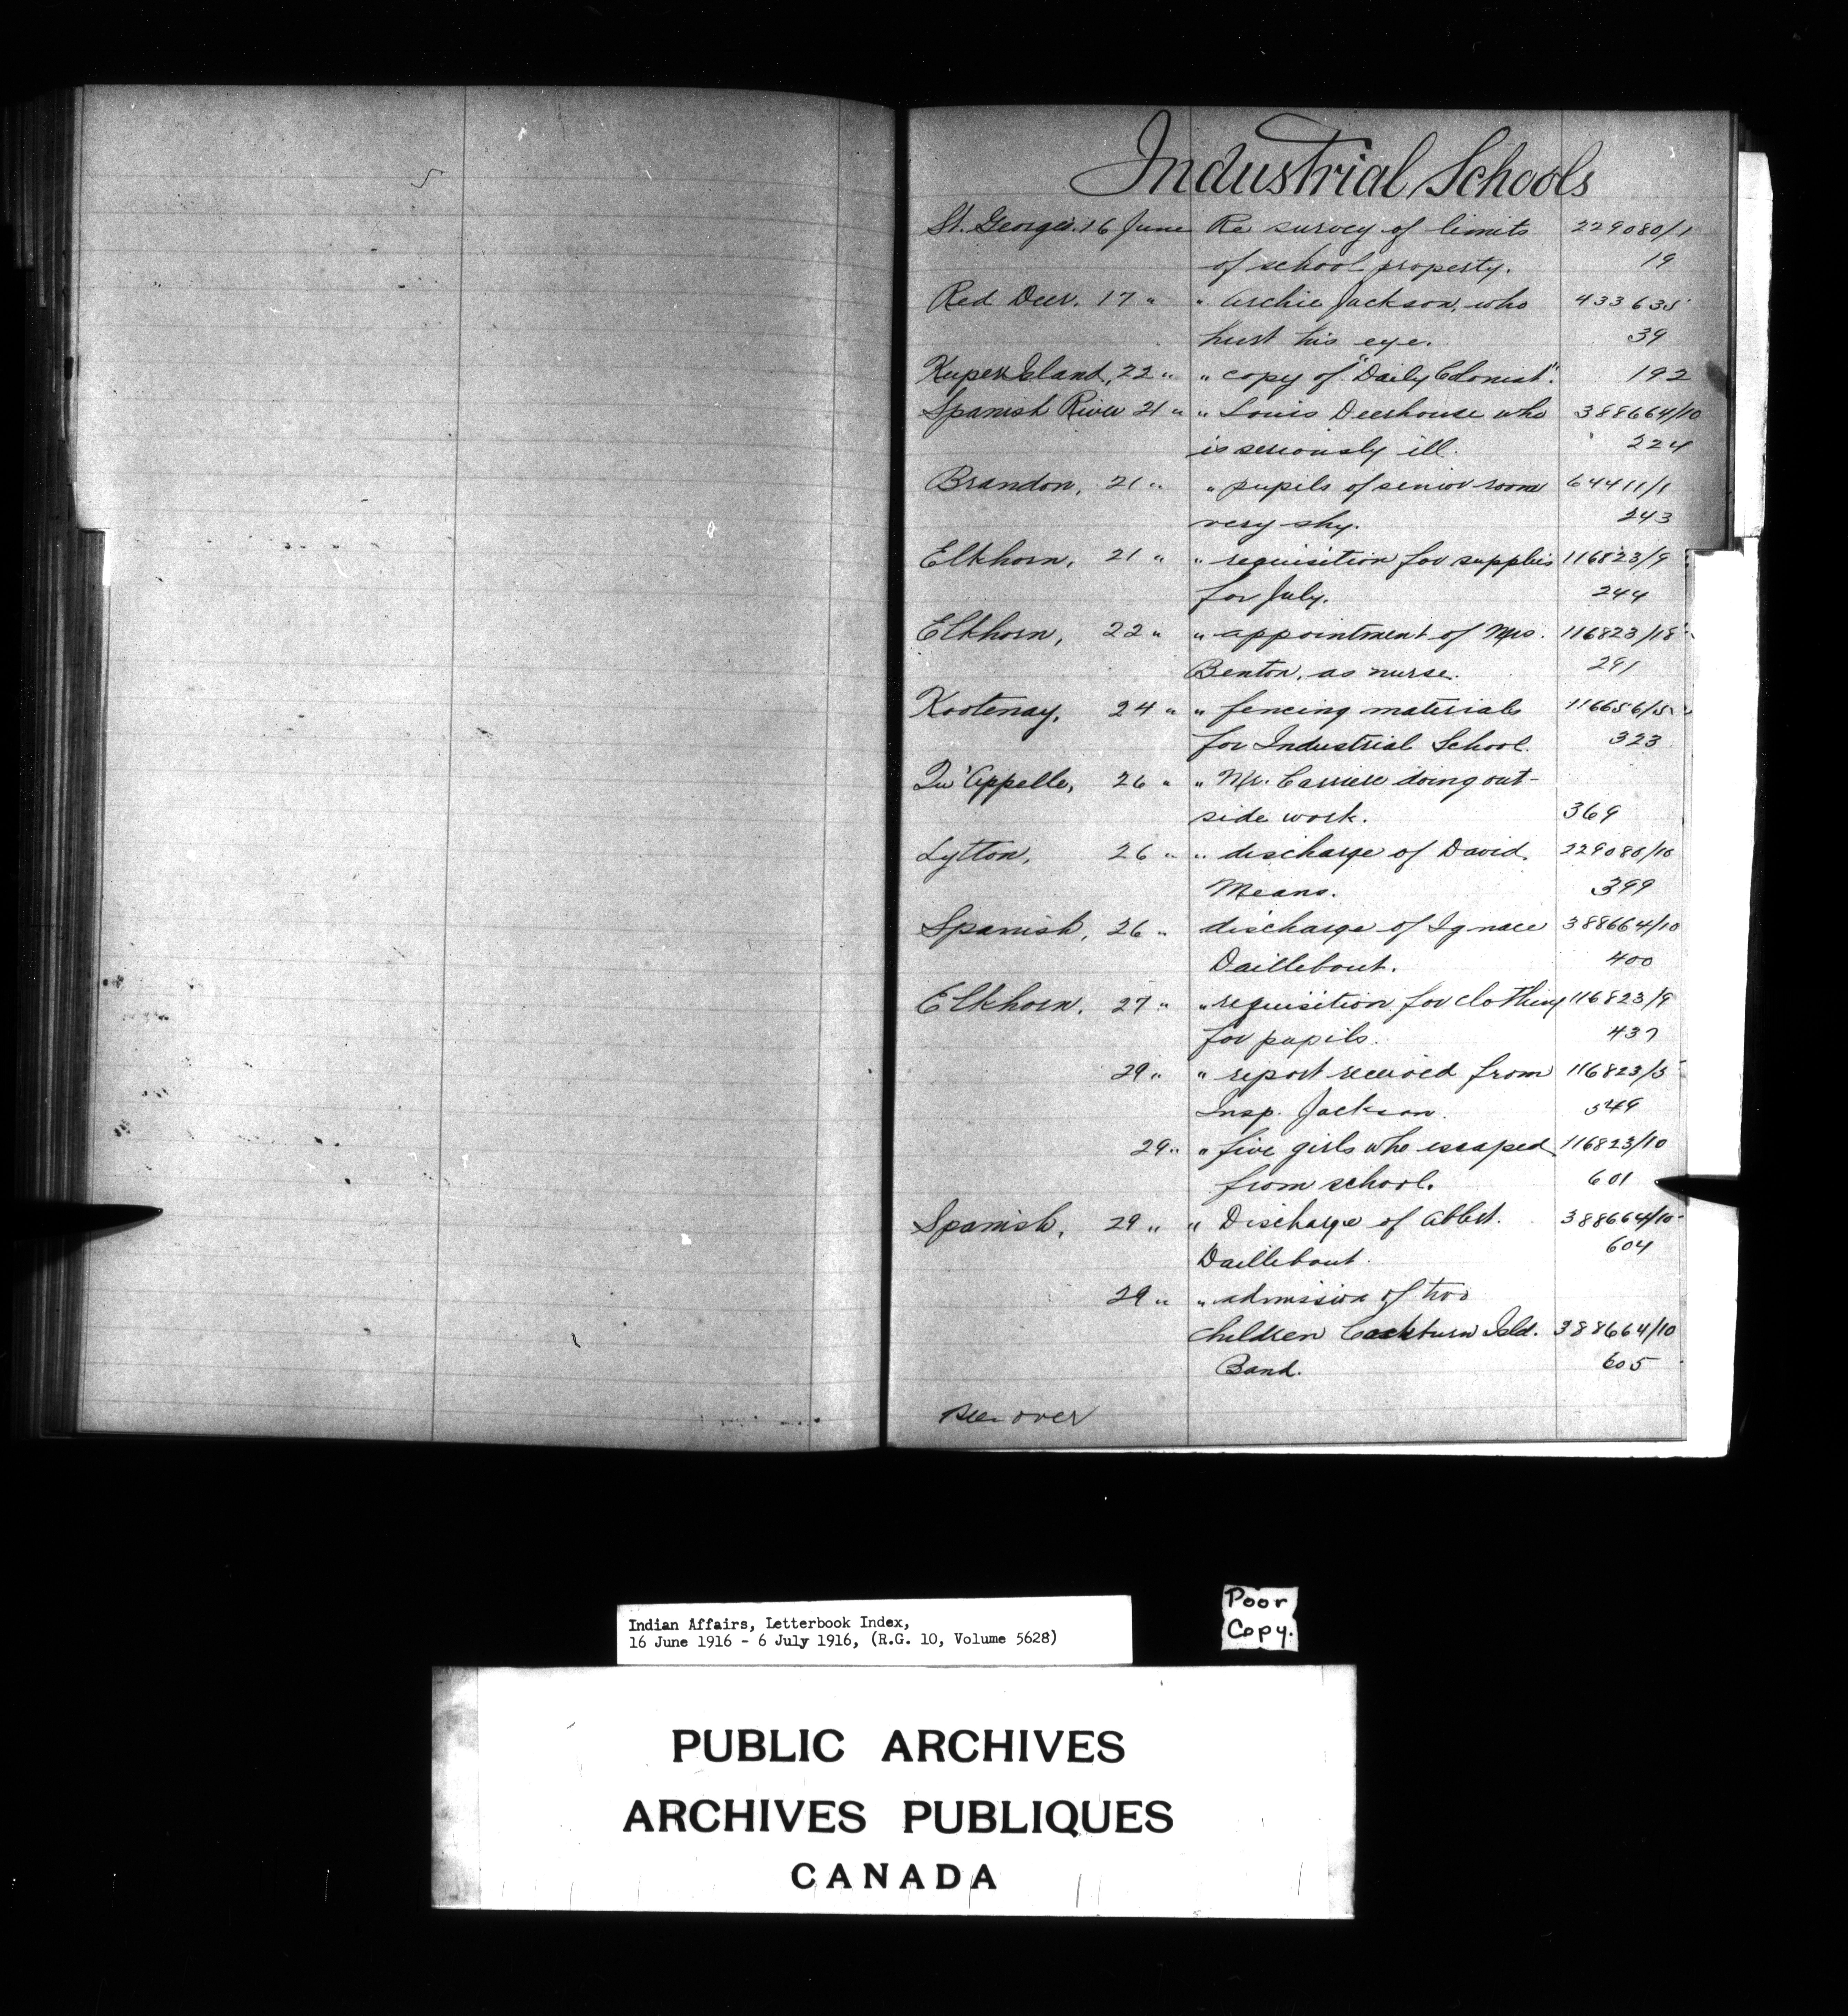 Industrial Schools
St. George's. 16 June Re survey of limits 229080/1
of school property. 19
Red Deer. 17 " " Archie Jackson, who 433635
hurt his eye. 39
Kuper Island, 22 " " copy of "Daily Colonist". 192
Spanish River 21 " " Louis Deerhouse who 388664/10
is seriously ill. 224
Brandon, 21 " " pupils of senior room 64411/1
very shy. 243
Elkhorn, 21 " " requisition for supplies 116823/9
for July. 244
Elkhorn, 22 " " appointment of Mrs. 116823/18
Benton, as nurse. 291
Kootenay, 24 " " fencing materials 116656/5
for Industrial School. 323
Qu'Appelle, 26 " " Mr. Carriere doing out-
side work. 369
Lytton, 26 " " discharge of David 229080/10
Means. 399
Spanish, 26 " discharge of Ignace 388664/10
Daillebout. 400
Elkhorn. 27 " " requisition for clothing 116823/9
for pupils. 437
29 " " report received from 116823/5
Insp. Jackson. 549
29 " " five girls who escaped 116823/10
from school. 601
Spanish, 29 " " Discharge of Albert 388664/10
Daillebout. 604
29 " " admission of two
children Cockburn Isld. 388664/10
Band. 605
See over
Indian Affairs, Letterbook Index,
16 June 1916 - 6 July 1916, (R.G. 10, Volume 5628)
Poor
Copy.
PUBLIC ARCHIVES
ARCHIVES PUBLIQUES
CANADA